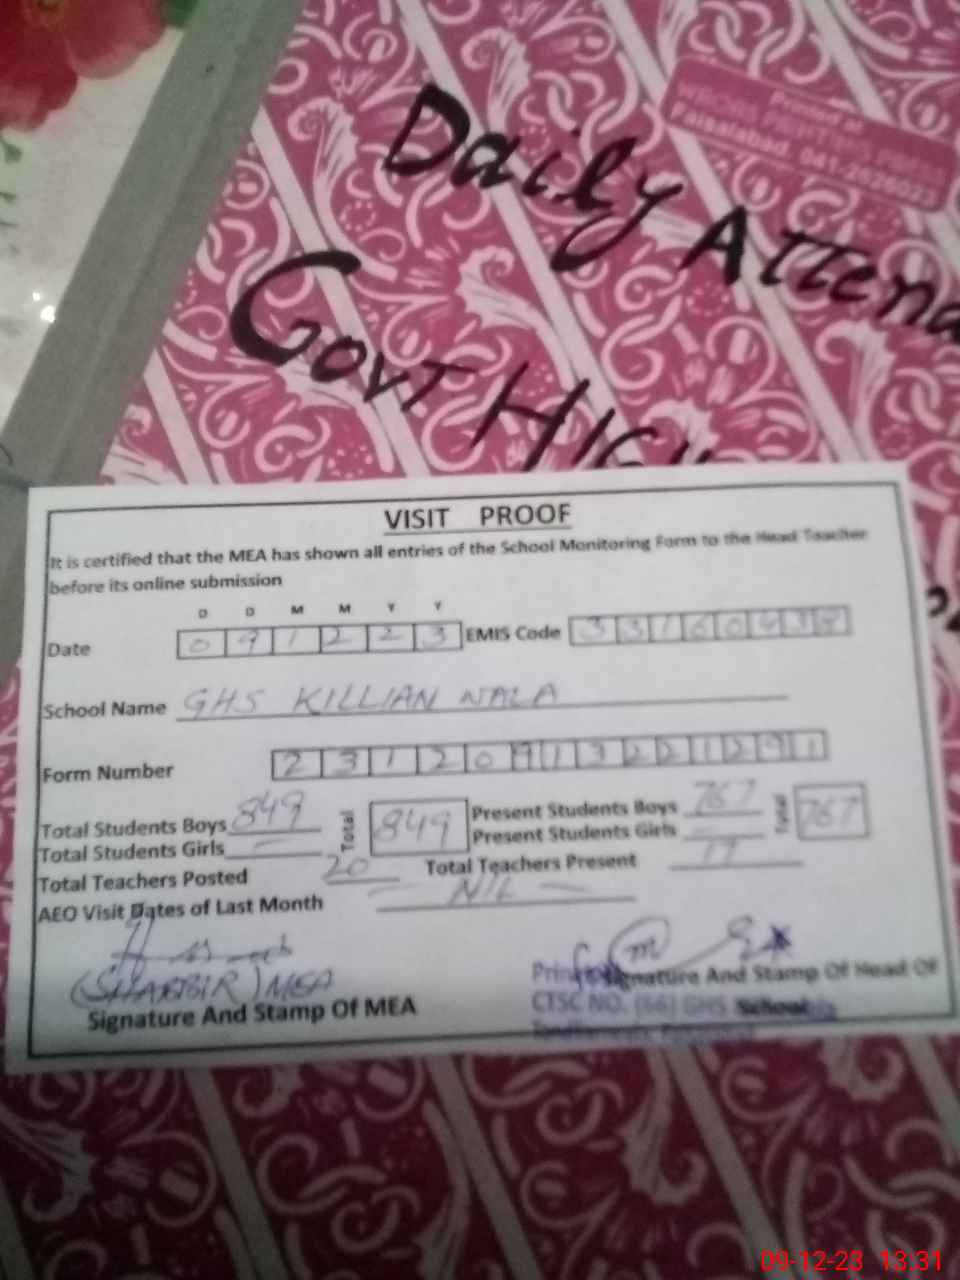 Printed at
PRINTING PRESS
Faisalabad. 041-2636022
Daily Attena
Govt High
VISIT PROOF
It is certified that the MEA has shown all entries of the School Monitoring Form to the Head Teacher
before its online submission
D D M M Y Y
Date 0 9 1 2 2 3 EMIS Code 3 3 1 6 0 4 3
School Name GHS KILLIAN WALA
Form Number 2 3 1 2 0 9 1 3 2 2 1 2 9 1
Total Students Boys 849 Total 849 Present Students Boys 767 Total 767
Total Students Girls — Present Students Girls —
Total Teachers Posted 20 Total Teachers Present 17
AEO Visit Dates of Last Month — NIL —
(SHABBIR) MEA
Signature And Stamp Of MEA
Signature And Stamp Of Head Of
School
CTSC NO. (66) GHS
09-12-23 13:31